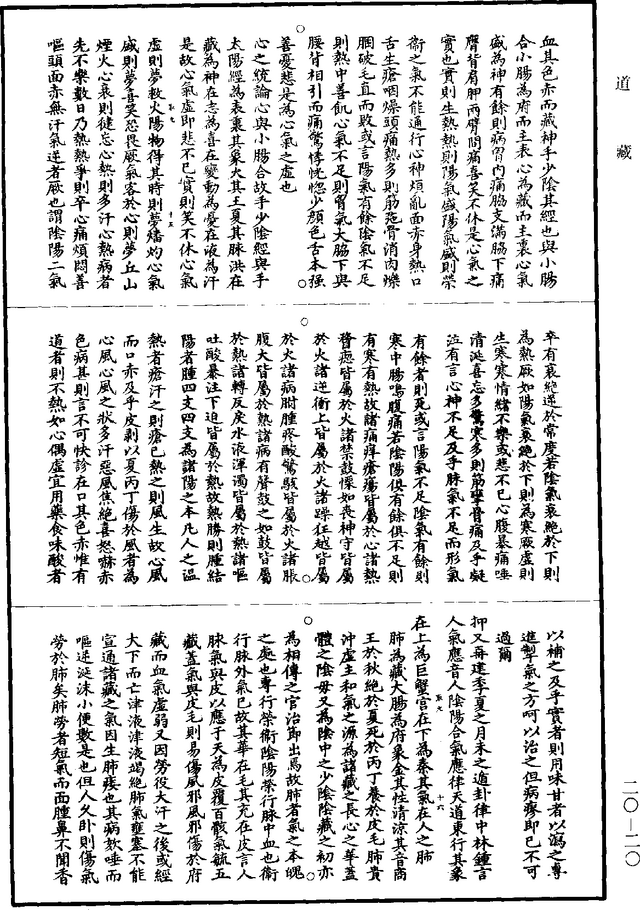 道藏
血其色赤而藏神手少陰其經也與小腸
合小腸為府而主表心為藏而主裏心氣
盛為神有餘則病胷内痛脇支滿脇下痛
膺背肩胛兩臂間痛喜笑不休是心氣之
實也實則生熱熱則陽氣盛陽氣盛則榮
衞之氣不能通行心神煩亂面赤身熱口
舌生瘡咽燥頭痛熱多則筋㢮骨消肉爍
䐃破毛直而敗或言陽氣有餘陰氣不足
則熱中善飢心氣不足則胷氣大脇下與
腰背相引而痛驚悸恍惚少顔色舌本强
善憂悲是為心氣之虚也
心之統論心與小腸合故手少陰經與手
太陽經為表裏其象火其王夏其脉洪在
藏為神在志為喜在變動為憂在液為汗
是故心氣虚即悲不已實則笑不休心氣
虚則夢救火陽物得其時則夢燔灼心氣
盛則夢喜笑恐畏厥氣客於心則夢丘山
煙火心衰則健忘心熱則多汗心熱病者
先不樂數日乃熱熱爭則卒心痛煩悶善
嘔頭面赤無汗氣逆者厥也謂陰陽二氣
卒有衰絶逆於常度若陰氣衰絶於下則
為熱厥如陽氣衰絶於下則為寒厥虚則
生寒寒情緒不樂或悲不已心腹暴痛唾
清涎喜忘多驚寒多則筋攣骨痛及乎凝
泣有言心神不足及乎脉氣不足而形氣
有餘者則死或言陽氣不足陰氣有餘則
寒中腸鳴腹痛若陰陽俱有餘俱不足則
有寒有熱故諸痛痒瘡瘍皆屬於心諸熱
瞀瘛皆屬於火諸禁鼓慄如喪神守皆屬
於火諸逆衝上皆屬於火諸躁狂越皆屬
於火諸病胕腫疼酸驚駭皆屬於火諸脹
腹大皆屬於熱諸病有聲鼓之如鼓皆屬
於熱諸轉反戾水液渾濁皆屬於熱諸嘔
吐酸暴注下迫皆屬於熱故熱勝則腫結
陽者腫四支四支為諸陽之本凡人之温
熱者瘡汗之則瘡已熱之則風生故心風
而口赤及乎皮剥以夏丙丁傷於風者為
心風心風之狀多汗惡風焦絶喜怒赫赤
色病甚則言不可快診在口其色赤唯有
道者則不熱如心偶虚宜用藥食味酸者
以補之及乎實者則用味甘者以瀉之專
進掣氣之方呵以治之但病瘳即已不可
過爾
抑又毒建季夏之月未之遁卦律中林鍾言
人氣應音人陰陽合氣應律天道東行其象
在上為巨蟹宫在下為秦其氣在人之肺
肺為藏大腸為府象金其性清涼其音商
王於秋絶於夏死於丙丁養於皮毛肺貴
沖虚生和氣之源為諸藏之長心之華蓋
體之陰母又為陰中之少陰陰藏之初亦
為相傳之官治節出焉故肺者氣之本魄
之處也專行榮衞陰陽榮行脉中血也衞
行脉外氣已故其華在毛其充在皮言人
脉氣與皮以應于天為皮覆百骸氣毓五
藏蓋氣與皮毛則易傷風邪風邪傷於府
藏而血氣虚弱又因勞役大汗之後或經
大下而亡津液津液竭絶肺氣壅塞不能
宣通諸藏之氣因生肺痿也其病欬唾而
嘔逆涎沫小便數是也但人久卧則傷氣
勞於肺矣肺勞者短氣而面腫鼻不聞香
二〇—二〇